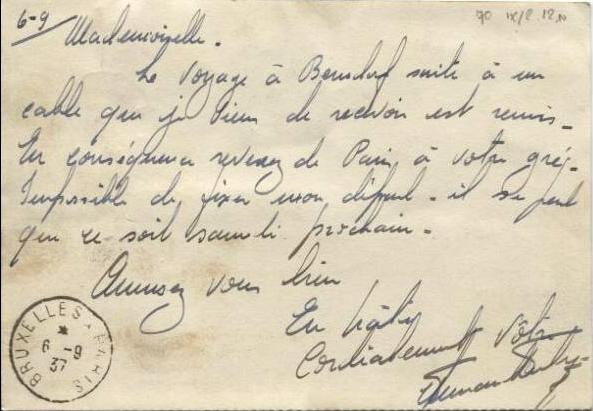 6-9
Mademoiselle.
Le voyage à suite à un
cable que je viens de recevoir est remis.
En conséquence revenez de Paris à votre gré.
Impossible de fixer mon départ. il se peut
que ce soit samedi prochain.
Amusez vous bien
En hâte
Cordialement Vôtre
BRUXELLES PARIS
6-9
37